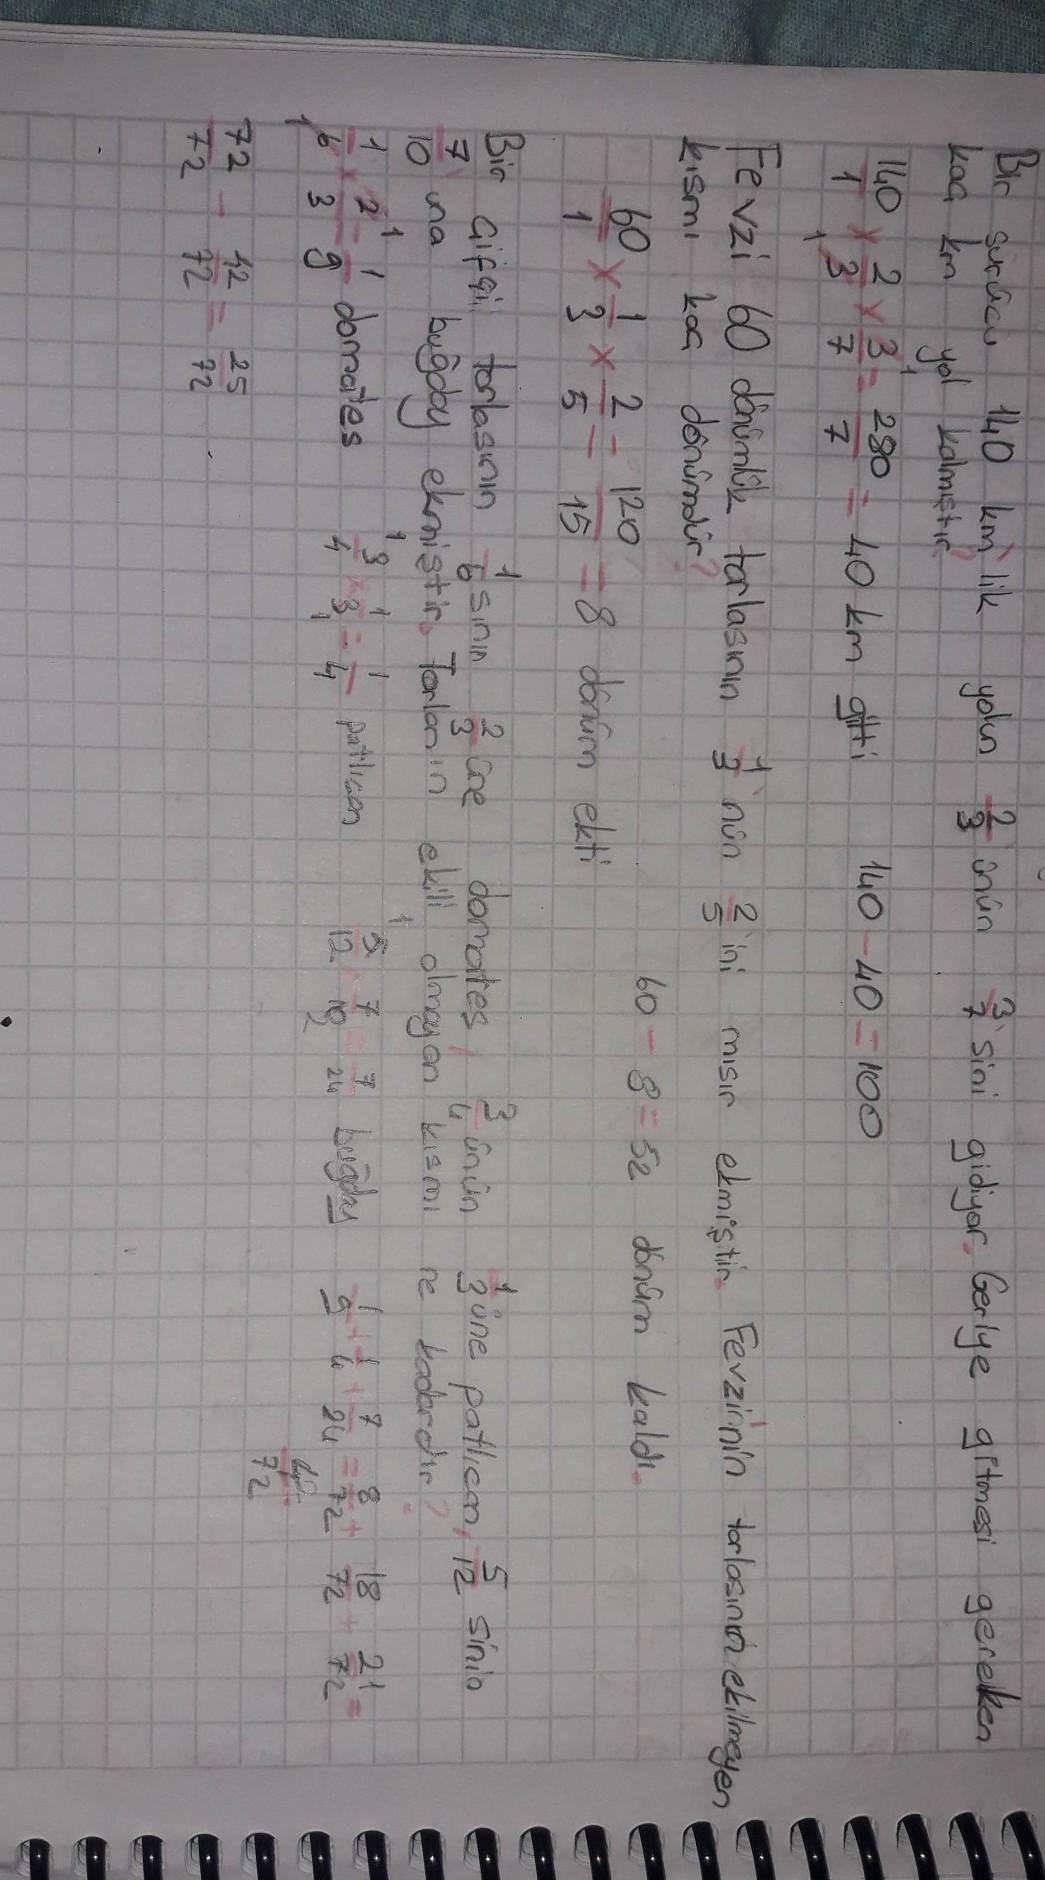 Bir sürücü 140 km'lik yolun 2/3'ünün 3/7'sini gidiyor. Geriye gitmesi gereken
kaç km yol kalmıştır?
140/1 × 2/3 × 3/7 = 280/7 = 40 km gitti 140 - 40 = 100
Fevzi 60 dönümlük tarlasının 1/3'nün 2/5'ini mısır ekmiştir. Fevzinin tarlasının ekilmeyen
kısmı kaç dönümdür?
60/1 × 1/3 × 2/5 = 120/15 = 8 dönüm ekti 60 - 8 = 52 dönüm kaldı.
Bir çifçi tarlasının 1/6 sının 2/3 üne domates, 3/4 ünün 1/3 üne patlıcan, 5/12 sinin
7/10 una buğday ekmiştir. Tarlanın ekili olmayan kısmı ne kadardır?
1/6 × 2/3 = 1/9 domates 3/4 × 1/3 = 1/4 patlıcan 5/12 × 7/10 = 7/24 buğday 1/9 + 1/4 + 7/24 = 8/72 + 18/72 + 21/72 =
72/72 - 42/72 = 25/72